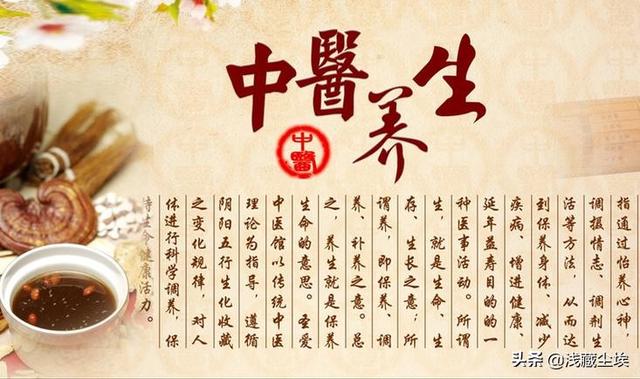 中醫养生
中醫
指通过怡养心神,
调摄情志、调剂生
活等方法,从而达
到保养身体、减少
疾病、增进健康、
延年益寿目的的一
种医事活动。所谓
生,就是生命、生
存、生长之意;所
谓养,即保养、调
养、补养之意。总
之,养生就是保养
生命的意思。圣爱
中医馆以传统中医
理论为指导,遵循
阴阳五行生化收藏
之变化规律,对人
体进行科学调养,保
持生命健康活力。
头条@浅藏尘埃